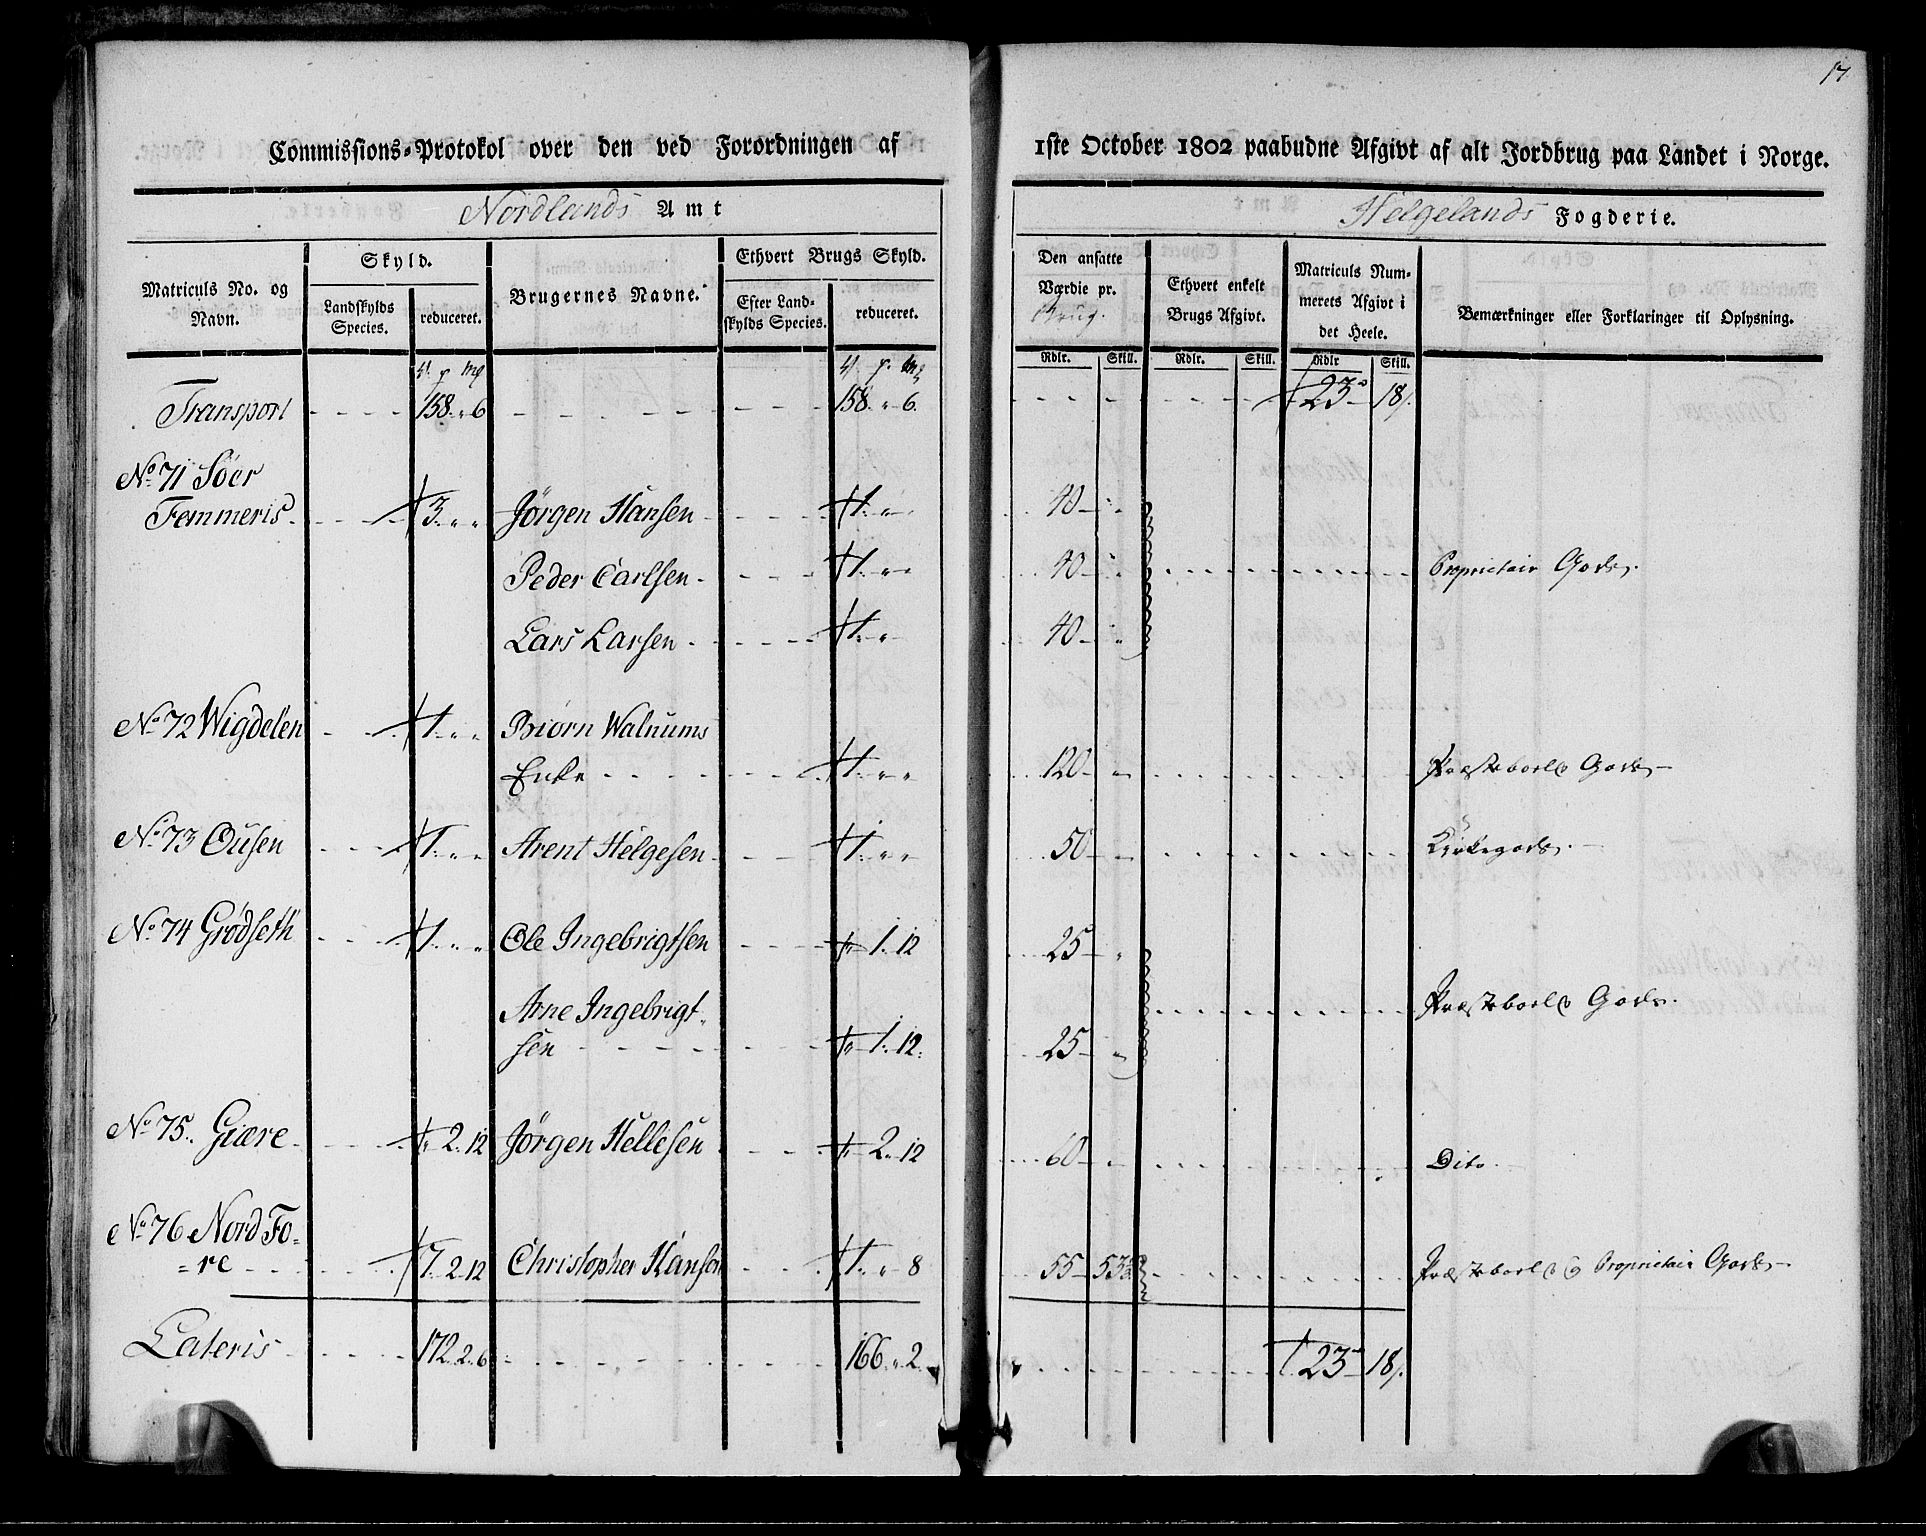 17
Commissions-Protokol over den ved Forordningen af 1ste October 1802 paabudne Afgivt af alt Jordbrug paa Landet i Norge.
Nordlands Amt Helgelands Fogderie.
Matriculs No. og Navn. Skyld. Landskylds Species. reduceret. Brugernes Navne. Ethvert Brugs Skyld. Efter Landskylds Species. reduceret. Den ansatte Værdie pr. Brug. Ethvert enkelt Brugs Afgivt. Matriculs Nummerets Afgivt i det Heele. Bemærkninger eller Forklaringer til Oplysning.
Rdlr. Skill. Rdlr. Skill. Rdlr Skill.
Transport 158 " 6 158 " 6. 23 18
No 71 Söer
Femmeris 3 " " Jörgen Hansen 1 " " 40 "
Peder Carlsen 1 " " 40 " Proprietair Gods.
Lars Larsen 1 " " 40 "
No 72 Wigdelen 1 " " Biörn Walnums
Enke 1 " " 120 " Præstebords Gods
No 73 Ousen 1 " " Arent Helgesen 1 " " 50 " Kirkegods.
No 74 Grödseth 1 " " Ole Ingebrigtsen " 1. 12 25 "
Arne Ingebrigt- Præstebords Gods.
sen " 1. 12. 25 "
No 75. Giære " 2. 12 Jörgen Hellesen " 2. 12 60 " Dito.
No 76 Nord Fo=
=re 7. 2. 12 Christopher Hansen 1. " 8 55 53 Præstebords og Proprietair Gods
Lateris 172. 2. 6 166. " 2. 23 18